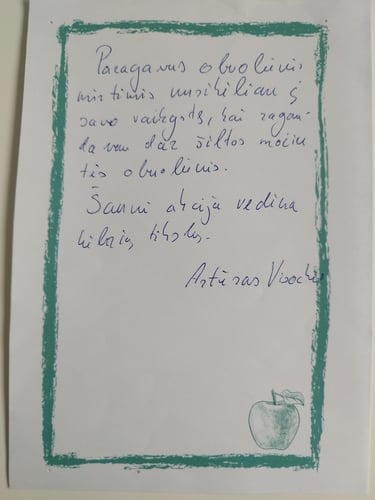 Paragavus obuolienės
mintimis nusikėliau į
savo vaikystę, kai ragau-
davau dar šiltos močiu
tės obuolienės.
Šauni akcija vedina
kilnių tikslų.
Artūras